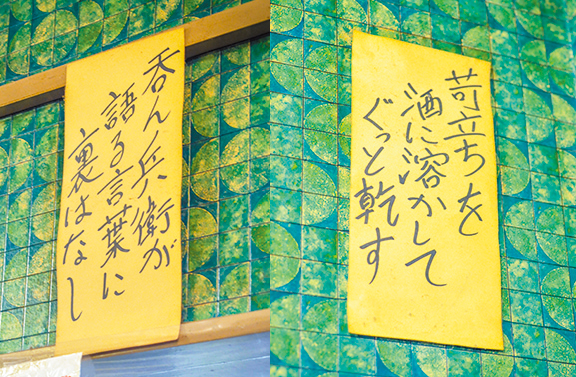 呑ん兵衛が
語る言葉に
裏はなし
苛立ちを
酒に溶かして
ぐっと乾す